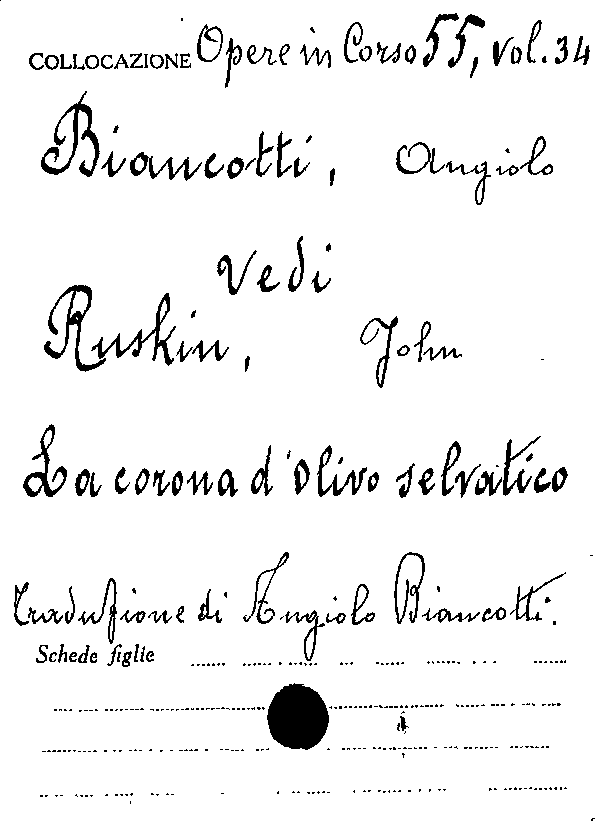 COLLOCAZIONE Opere in Corso 55, vol. 34
Biancotti, Angiolo
Vedi
Ruskin, John
La corona d'olivo selvatico
Traduzione di Angiolo Biancotti.
Schede figlie